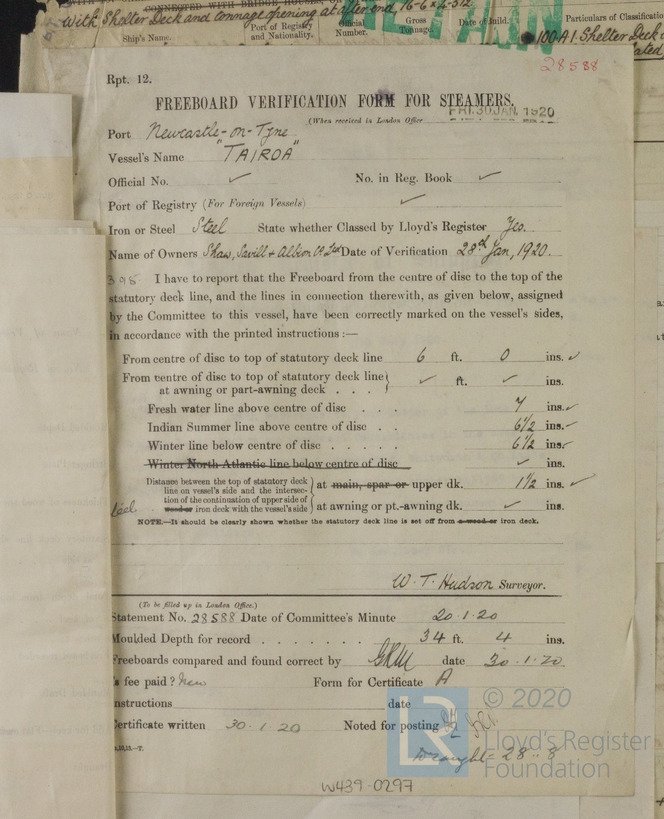 CONNECTED WITH BRIDGE HOUSE,
With Shelter Deck and tonnage opening at after end 16-6 x 4-32
Ship's Name.
Port of Registry and Nationality.
Official Number.
Gross Tonnage.
Date of Build.
Particulars of Classification
100A1. Shelter Deck
28588
Rpt. 12.
FREEBOARD VERIFICATION FORM FOR STEAMERS.
(When received in London Office FRI. 30 JAN. 1920
Port Newcastle-on-Tyne
Vessel's Name "TAIROA"
Official No. ✓ No. in Reg. Book ✓
Port of Registry (For Foreign Vessels) ✓
Iron or Steel Steel State whether Classed by Lloyd's Register Yes.
Name of Owners Shaw, Savill & Albion Co Ltd Date of Verification 28th Jan, 1920.
I have to report that the Freeboard from the centre of disc to the top of the
statutory deck line, and the lines in connection therewith, as given below, assigned
by the Committee to this vessel, have been correctly marked on the vessel's sides,
in accordance with the printed instructions :—
From centre of disc to top of statutory deck line 6 ft. 0 ins. ✓
From centre of disc to top of statutory deck line
at awning or part-awning deck . . . ✓ ft. ✓ ins.
Fresh water line above centre of disc . . . 7 ins. ✓
Indian Summer line above centre of disc . . 6 1/2 ins. ✓
Winter line below centre of disc . . . . 6 1/2 ins. ✓
Winter North Atlantic line below centre of disc ✓ ins.
Distance between the top of statutory deck
line on vessel's side and the intersec-
tion of the continuation of upper side of
wood or iron deck with the vessel's side
at main, spar or upper dk. 1 1/2 ins. ✓
at awning or pt.-awning dk. ✓ ins.
Steel
NOTE.—It should be clearly shown whether the statutory deck line is set off from a wood or iron deck.
W. T. Hudson Surveyor.
(To be filled up in London Office.)
Statement No. 28588 Date of Committee's Minute 20.1.20
Moulded Depth for record . . . . . . . 34 ft. 4 ins.
Freeboards compared and found correct by date 30.1.20.
's fee paid? New Form for Certificate A
Instructions date
Certificate written 30.1.20 Noted for posting
Draught = 28-8
W439-0297
© 2020
LR
Lloyd's Register
Foundation